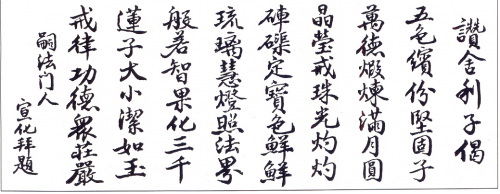 讚舍利子偈
五色繽份堅固子
萬德煅煉滿月圓
晶瑩戒珠光灼灼
硨磲定寶色鮮鮮
琉璃慧燈照法界
般若智果化三千
蓮子大小潔如玉
戒律功德眾莊嚴
嗣法门人
宣化拜題